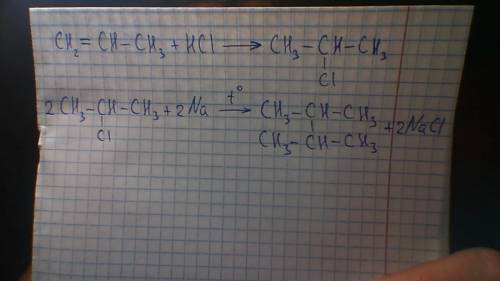 CH₂=CH-CH₃+HCl⟶CH₃-CH-CH₃
Cl
2CH₃-CH-CH₃+2Na t°⟶ CH₃-CH-CH₃
Cl CH₃-CH-CH₃ +2NaCl